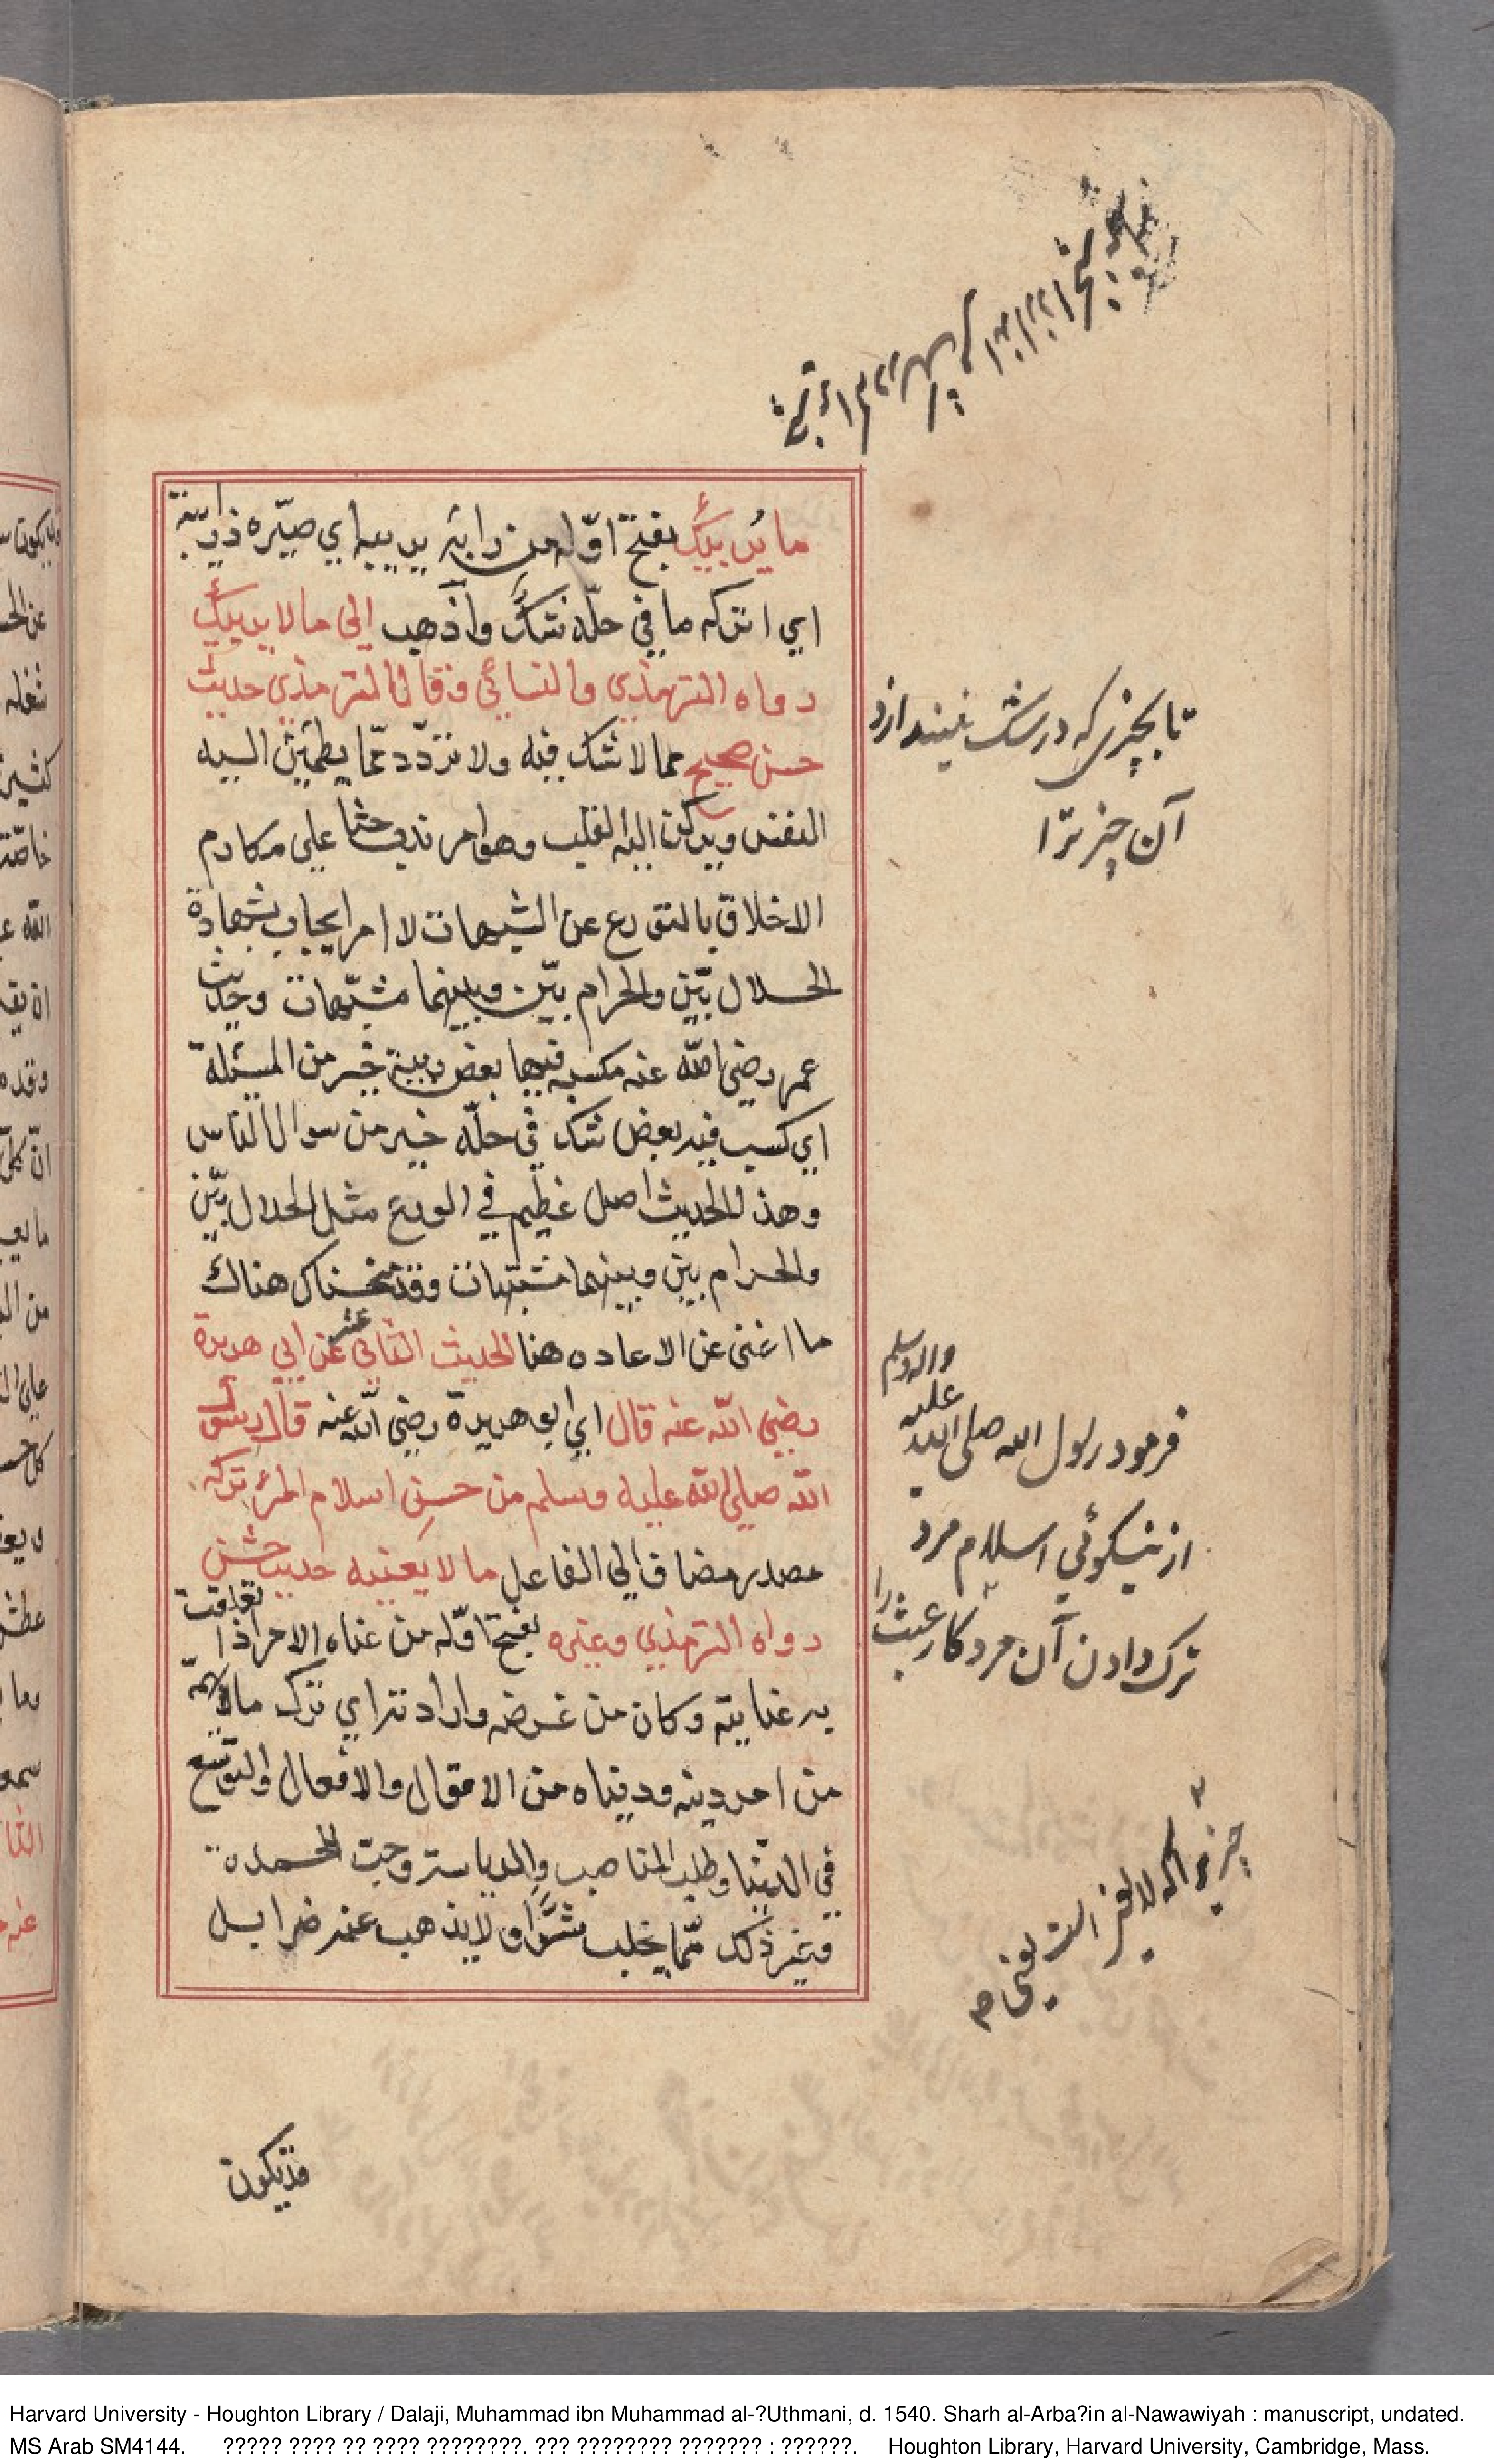 ما يُريبك بفتح اوّله من رابه يريبه اي صيّره ذا ريبة
اي اترك ما في حلّه شكّ واذهب الى ما لا يريبك
رواه الترمذي والنسائي وقال الترمذي حديث
حسن صحيح مما لا شك فيه ولا تردّد ممّا يطمئن اليه
النفس ويركن اليه القلب وهو امر ندب حثا علي مكارم
الاخلاق بالتورع عن الشبهات لا امر ايجاب بشهادة
الحلال بيّن والحرام بيّن وبينهما مشبّهات وحديث
عمر رضي الله عنه مكسبه فيها بعض ريبة خير من المسئلة
اي كسب فيه بعض شك في حلّه خير من سوال الناس
وهذا الحديث اصل عظيم في الورع مثل الحلال بيّن
والحرام بين وبينهما مشتبهات وقد منحناك هناك
ما اغنى عن الاعاده هنا الحديث الثاني عشر عن ابي هريرة
رضي الله عنه قال اي ابو هريرة رضي الله عنه قال رسول
الله صلى الله عليه وسلم من حسن اسلام المرء تركه
مصدر مضاف الى الفاعل ما لا يعنيه حديث حسن
رواه الترمذي وغيره بفتح اوّله من عناه الامر اذا تعلقت
به عنايته وكان من غرضه وارادته اي ترك ما لا يهمّه
من امر دينه ودنياه من الاقوال والافعال والتوسّع
في الدنيا وطلب المناصب والرياسة وحبّ المحمدة
وغير ذلك ممّا يجلب شرّا ولا يذهب عنه ضرا بل
قد يكون
تا بچیزی که در شک نیندازد
آن چیز ترا
فرمود رسول الله صلى الله عليه
واله وسلم
از نیکوئی اسلام مرد
ترک دادن آن مرد کار عبث را